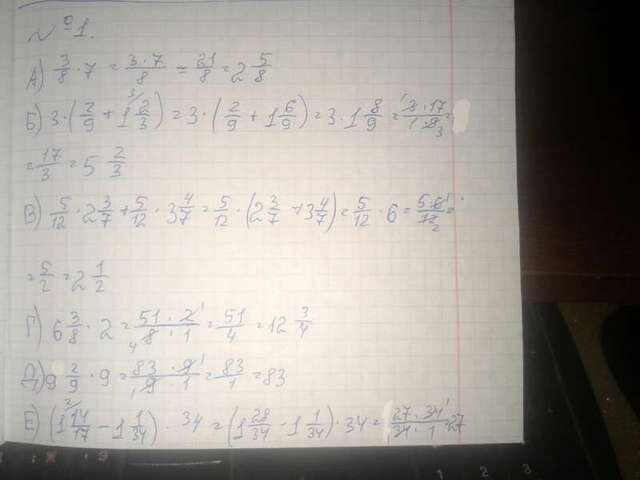 №1.
А) 3/8 · 7 = 3·7/8 = 21/8 = 2 5/8
Б) 3·(2/9 + 1 2/3) = 3·(2/9 + 1 6/9) = 3·1 8/9 = 3·17/1·9 =
= 17/3 = 5 2/3
В) 5/12 · 2 3/7 + 5/12 · 3 4/7 = 5/12 · (2 3/7 + 3 4/7) = 5/12 · 6 = 5·6/12 =
= 5/2 = 2 1/2
Г) 6 3/8 · 2 = 51·2/8·1 = 51/4 = 12 3/4
Д) 9 2/9 · 9 = 83·9/9·1 = 83/1 = 83
Е) (1 14/17 - 1 1/34) · 34 = (1 28/34 - 1 1/34) · 34 = 27·34/34·1 = 27